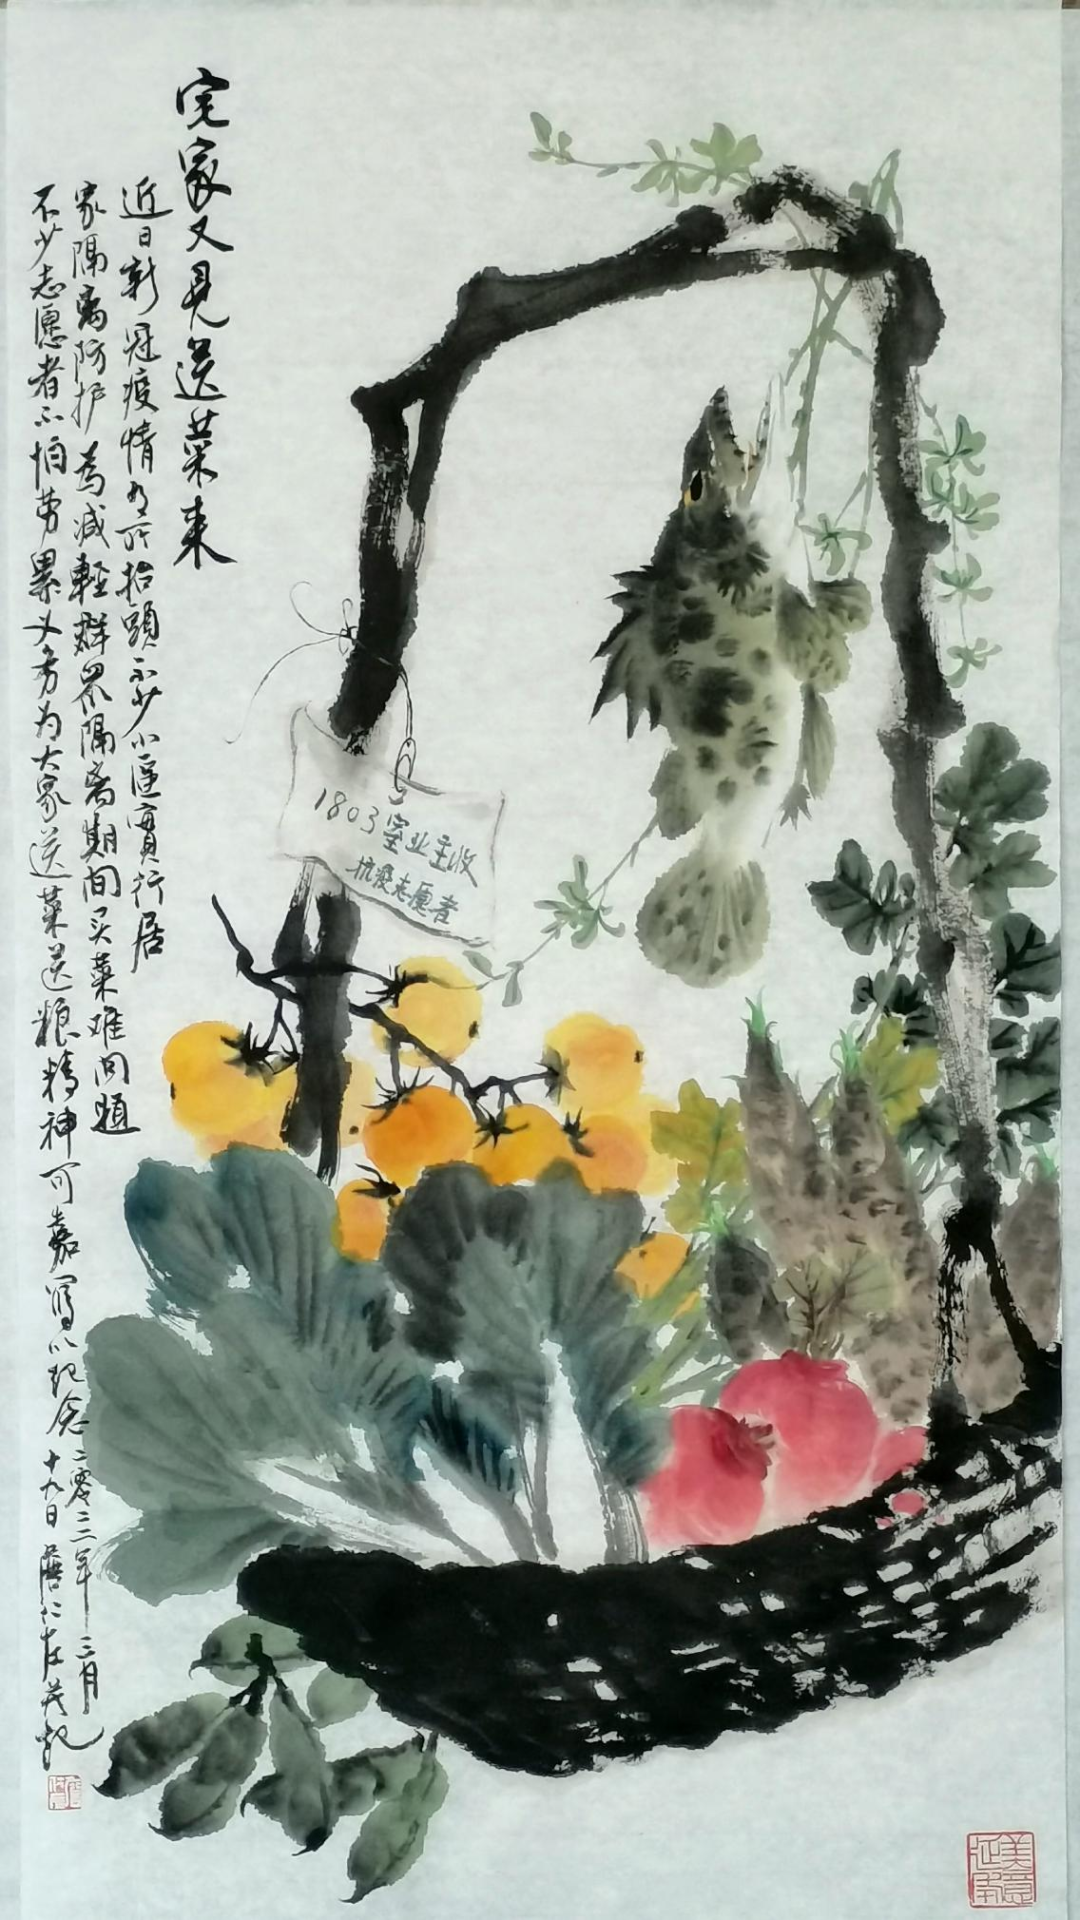 宅家又見送菜来
近日新冠疫情有所抬頭不少小區實行居
家隔离防护為减輕群众隔离期间买菜难问题
不少志愿者不怕劳累义务为大家送菜送粮精神可嘉写以纪念二零二二年三月
十九日
1803室业主收
抗疫志愿者
美意延年